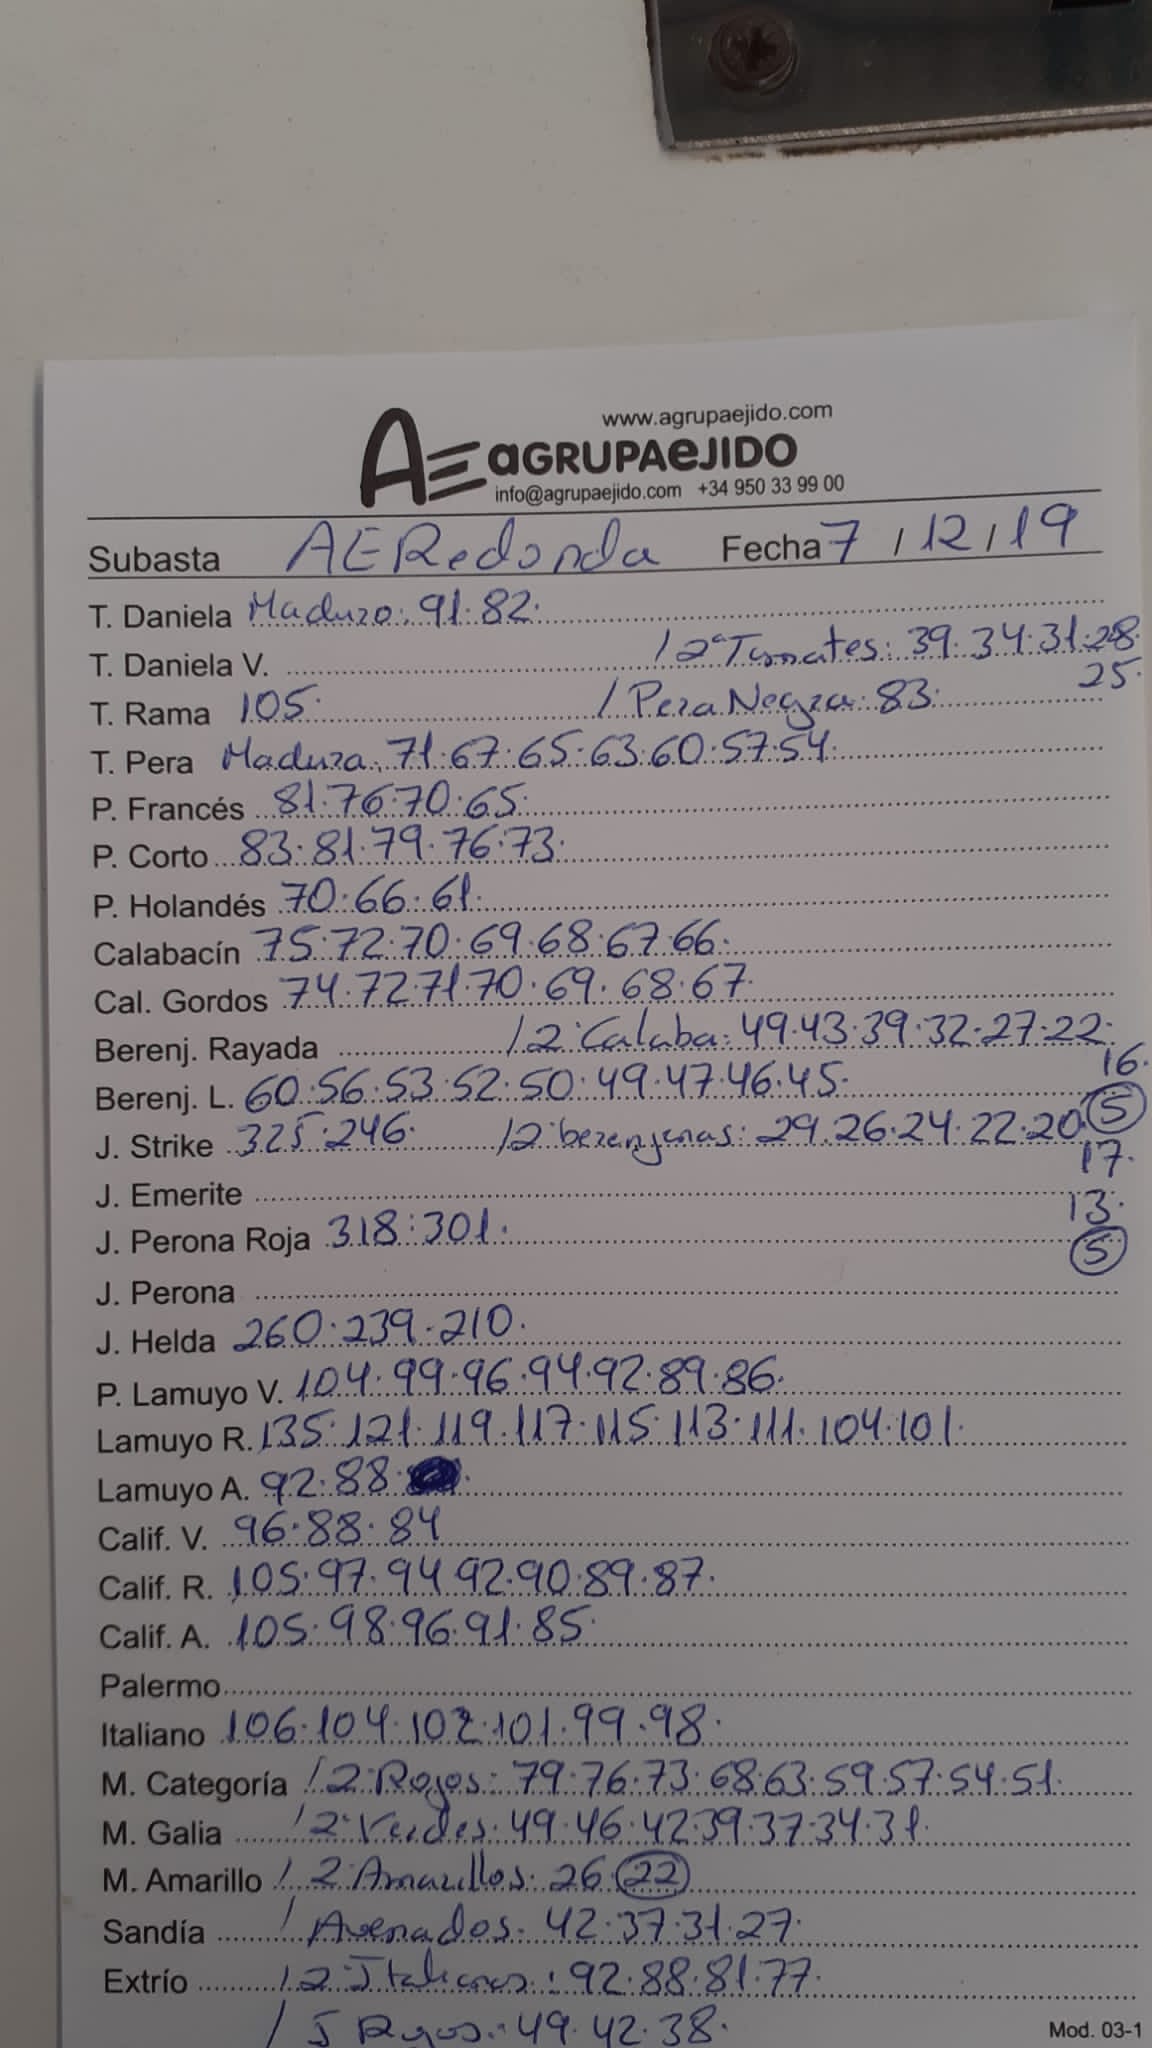 www.agrupaejido.com
AE aGRUPAeJIDO
info@agrupaejido.com +34 950 33 99 00
Subasta AERedonda Fecha 7/12/19
T. Daniela Maduro: 91.82.
T. Daniela V. /2ªTomates: 39.34.31.28.
25.
T. Rama 105. /Pera Negra: 83.
T. Pera Madura: 71.67.65.63.60.57.54.
P. Francés 81.76.70.65.
P. Corto 83.81.79.76.73.
P. Holandés 70.66.61.
Calabacín 75.72.70.69.68.67.66.
Cal. Gordos 74.72.71.70.69.68.67.
Berenj. Rayada /2ªCalaba: 49.43.39.32.27.22.
16.
Berenj. L. 60.56.53.52.50.49.47.46.45. 5
J. Strike 325.246. /2ªberenjenas: 29.26.24.22.20.
17.
J. Emerite 13.
J. Perona Roja 318.301. 5
J. Perona
J. Helda 260.239.210.
P. Lamuyo V. 104.99.96.94.92.89.86.
Lamuyo R. 135.121.119.117.115.113.111.104.101.
Lamuyo A. 92.88.
Calif. V. 96.88.84
Calif. R. 105.97.94.92.90.89.87.
Calif. A. 105.98.96.91.85.
Palermo
Italiano 106.104.102.101.99.98.
M. Categoría /2ªRojos: 79.76.73.68.63.59.57.54.51.
M. Galia /2ªVerdes: 49.46.42.39.37.34.31.
M. Amarillo /2ªAmarillos: 26.22
Sandía /Asenados: 42.37.31.27.
Extrío /2ªItalianos: 92.88.81.77.
/J Rojos: 49.42.38.
Mod. 03-1